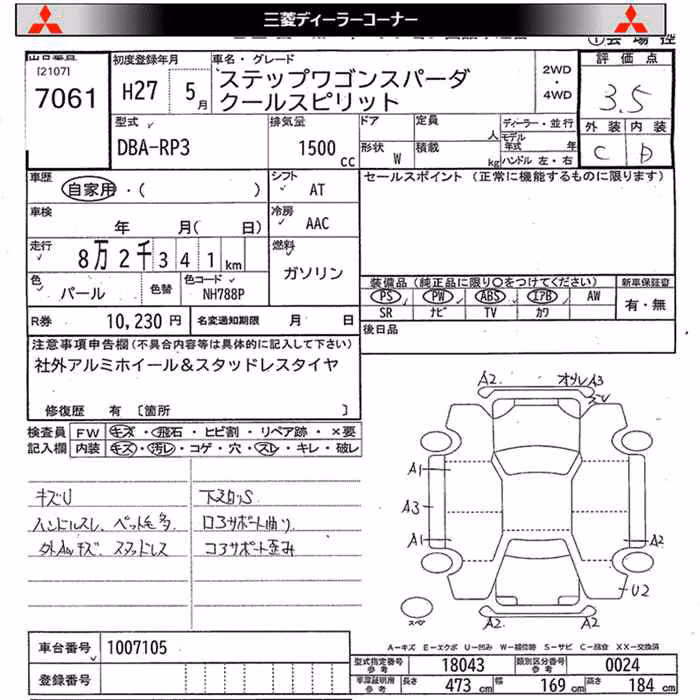 三菱ディーラーコーナー
[2107]
7061
初度登録年月
H27 5月
車名・グレード
ステップワゴンスパーダ
クールスピリット
2WD
・
4WD
評価点
3.5
外装 内装
C D
型式
DBA-RP3
排気量
1500 cc
ドア
定員 人
形状 W
積載 kg
ディーラー・並行
モデル年式 年
ハンドル 左・右
車歴
自家用・( )
シフト
AT
セールスポイント (正常に機能するものに限ります)
車検
年 月( 日)
冷房
AAC
走行
8万2千341km
燃料
ガソリン
色
パール
色替
色コード
NH788P
装備品(純正品に限り○をつけてください)
PS PW ABS エアB AW
SR ナビ TV カワ
新車保証書
有・無
R券 10,230円
名変通知期限 月 日
後日品
注意事項申告欄(不具合内容等は具体的に記入して下さい)
社外アルミホイール&スタッドレスタイヤ
修復歴 有 〔箇所 〕
検査員 FW キズ・飛石・ヒビ割・リペア跡・×要
記入欄 内装 キズ・汚レ・コゲ・穴・スレ・キレ・破レ
キズU
ハンドルスレ、ペット毛多
外AWキズ、スタッドレス
下廻りS
ロアサポート曲り
コアサポート歪み
A2
A3
A1
A3
A1
A2
U2
A2
A2
スペア
A-キズ E-エクボ U-凹み W-補修跡 S-サビ C-腐食 XX-交換済
車台番号 1007105
登録番号
型式指定番号 参考 18043
類別区分番号 参考 0024
車庫証明用 参考
長さ 473 cm
幅 169 cm
高さ 184 cm